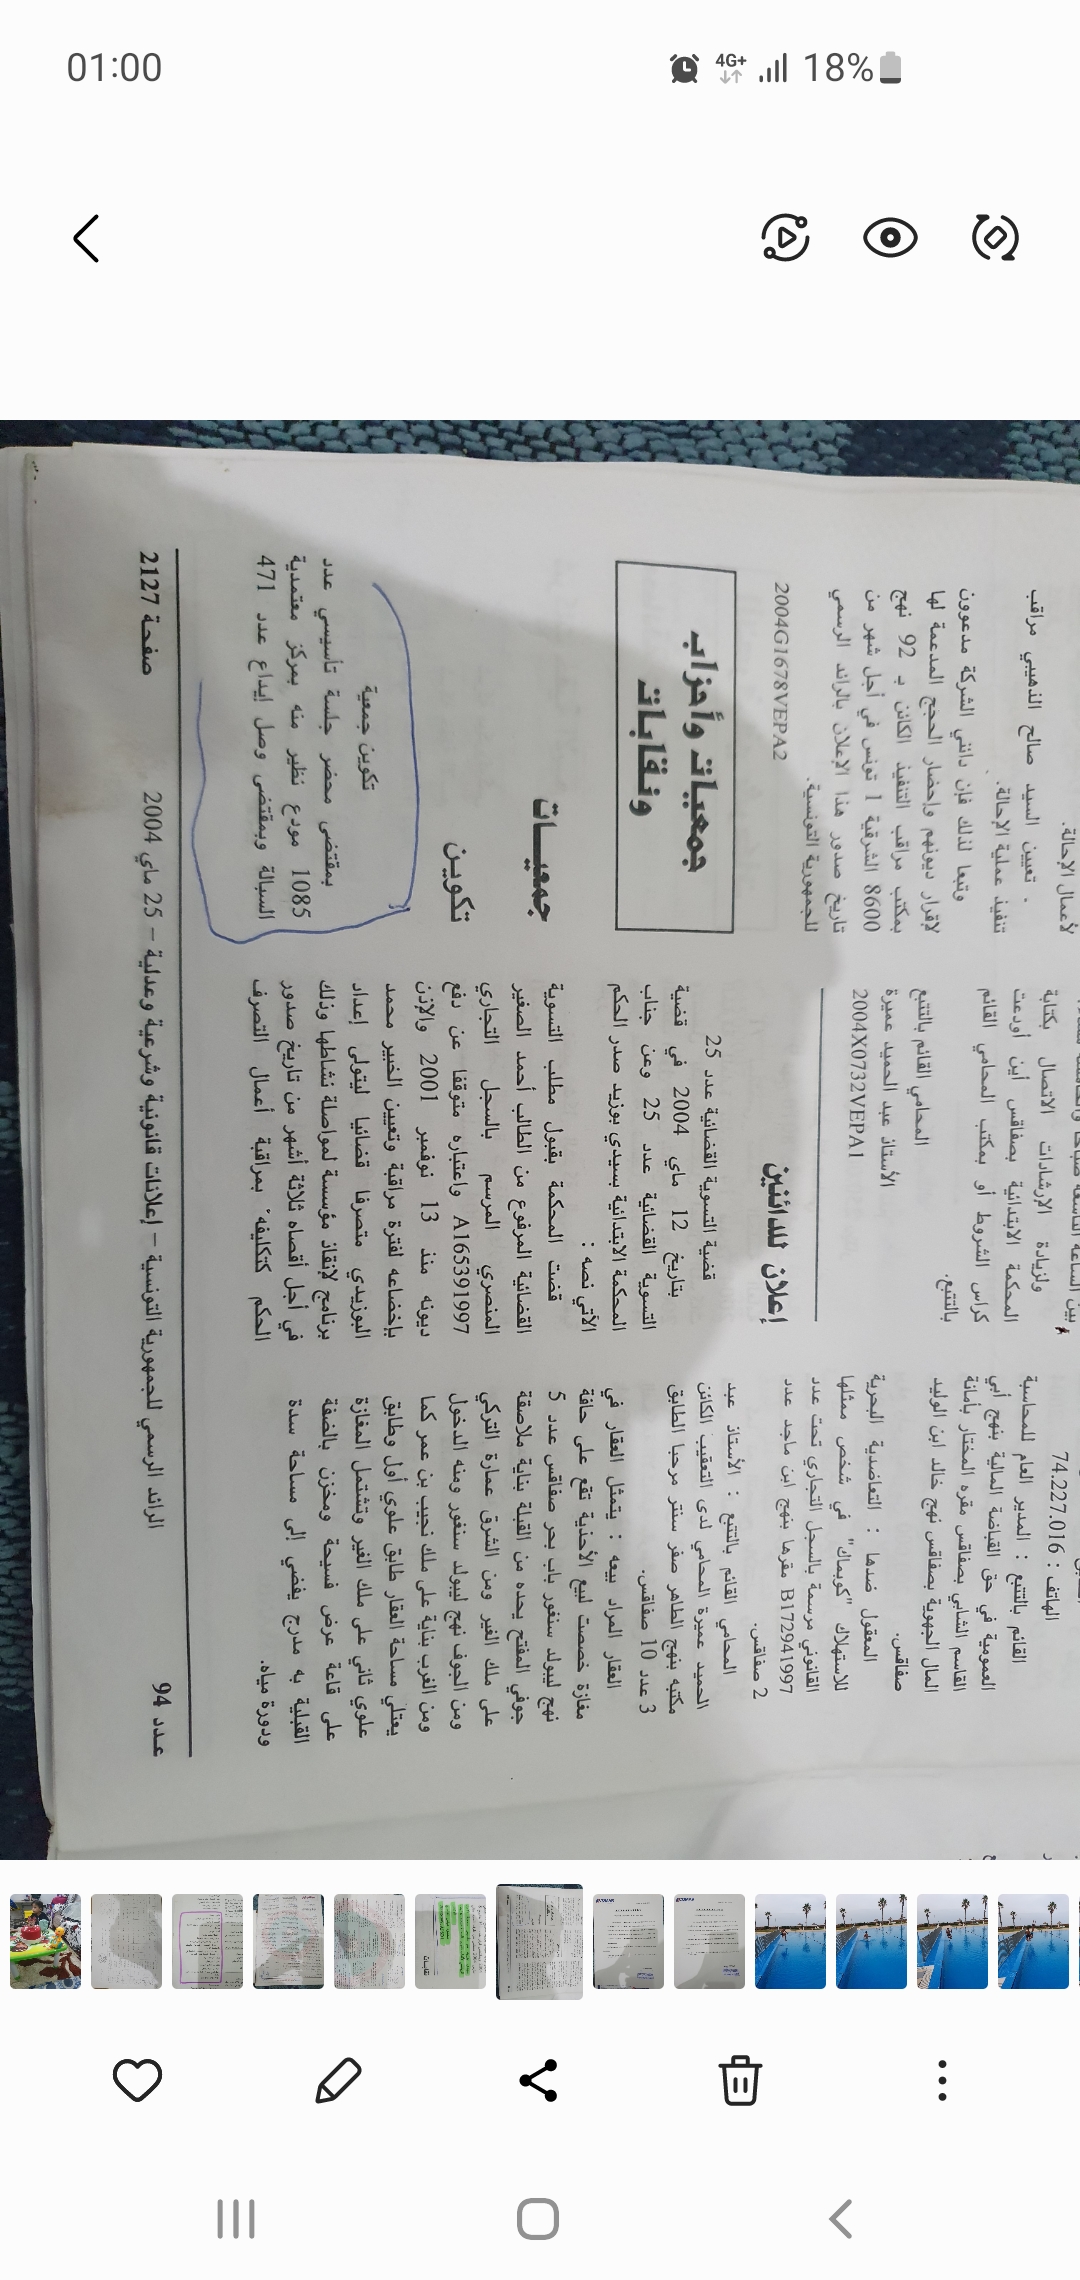 01:00
4G+
18%
الهاتف : 74.227.016
القائم بالتتبع : المدير العام للمحاسبة
العمومية في حق القباضة المالية بنهج أبي
القاسم الشابي بصفاقس مقره المختار بأمانة
المال الجهوية بصفاقس نهج خالد ابن الوليد
صفاقس.
المعقول ضدها : التعاضدية البحرية
للاستهلاك "كوبماك" في شخص ممثلها
القانوني مرسمة بالسجل التجاري تحت عدد
B172941997 مقرها بنهج ابن ماجد عدد
2 صفاقس.
المحامي القائم بالتتبع : الأستاذ عبد
الحميد عميرة المحامي لدى التعقيب الكائن
مكتبه بنهج الطاهر صفر سنتر مرحبا الطابق
3 عدد 10 صفاقس.
العقار المراد بيعه : يتمثل العقار في
مغازة خصصت لبيع الأحذية تقع على حافة
نهج ليبولد سنغور باب بحر صفاقس عدد 5
جوفي المفتح يحده من القبلة بناية ملاصقة
على ملك الغير ومن الشرق عمارة التركي
ومن الجوف نهج ليبولد سنغور ومنه الدخول
ومن الغرب بناية على ملك نجيب بن عمر كما
يعتلي مساحة العقار طابق علوي أول وطابق
علوي ثاني على ملك الغير وتشتمل المغازة
على قاعة عرض فسيحة ومخزن بالضفة
القبلية به مدرج يفضي إلى مساحة سدة
ودورة مياه.
بين الساعة التاسعة صباحا
ولزيادة الإرشادات الاتصال بكتابة
المحكمة الابتدائية بصفاقس أين أودعت
كراس الشروط أو بمكتب المحامي القائم
بالتتبع.
المحامي القائم بالتتبع
الأستاذ عبد الحميد عميرة
2004X0732VEPA1
إعلان للدائنين
قضية التسوية القضائية عدد 25
بتاريخ 12 ماي 2004 في قضية
التسوية القضائية عدد 25 وعن جناب
المحكمة الابتدائية بسيدي بوزيد صدر الحكم
الآتي نصه :
قضت المحكمة بقبول مطلب التسوية
القضائية المرفوع من الطالب أحمد الصغير
المنصري المرسم بالسجل التجاري
A165391997 واعتباره متوقفا عن دفع
ديونه منذ 13 نوفمبر 2001 والإذن
بإخضاعه لفترة مراقبة وتعيين الخبير محمد
البوزيدي متصرفا قضائيا ليتولى إعداد
برنامج لإنقاذ مؤسسة لمواصلة نشاطها وذلك
في أجل أقصاه ثلاثة أشهر من تاريخ صدور
الحكم كتكليفه بمراقبة أعمال التصرف
لأعمال الإحالة.
- تعيين السيد صالح الذهيبي مراقب
تنفيذ عملية الإحالة.
وتبعا لذلك فإن دائني الشركة مدعوون
لإقرار ديونهم وإحضار الحجج المدعمة لها
بمكتب مراقب التنفيذ الكائن بـ 92 نهج
8600 الشرقية 1 تونس في أجل شهر من
تاريخ صدور هذا الإعلان بالرائد الرسمي
للجمهورية التونسية.
2004G1678VEPA2
جمعيات وأحزاب
ونقابات
جمعيـــات
تكوين
تكوين جمعية
بمقتضى محضر جلسة تأسيسي عدد
1085 مودع نظير منه بمركز معتمدية
السبالة وبمقتضى وصل إيداع عدد 471
عـدد 94
الرائد الرسمي للجمهورية التونسية – إعلانات قانونية وشرعية وعدلية – 25 ماي 2004
صفحة 2127